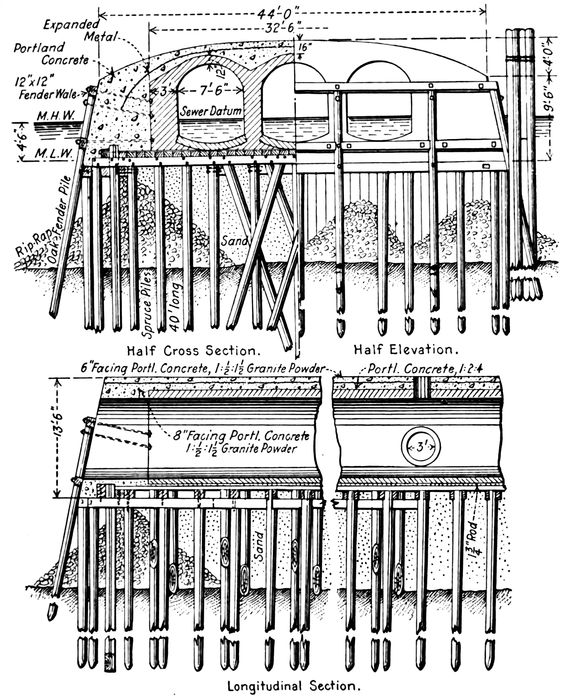 44'-0"
32'-6"
Expanded
Metal
Portland
Concrete
16"
12"
4'-0"
12"x12"
Fender Wale
3'
7'-6"
9'-6"
Sewer Datum
M.H.W.
4'-6"
M.L.W.
Rip Rap
Oak Fender Pile
Sand
Spruce Piles
40' long
Half Cross Section.
Half Elevation.
6" Facing Portl. Concrete, 1:½:1½ Granite Powder
Portl. Concrete, 1:2:4
13'-6"
8" Facing Portl. Concrete
1:½:1½ Granite Powder
3'
Sand
1¾" Rod
Longitudinal Section.